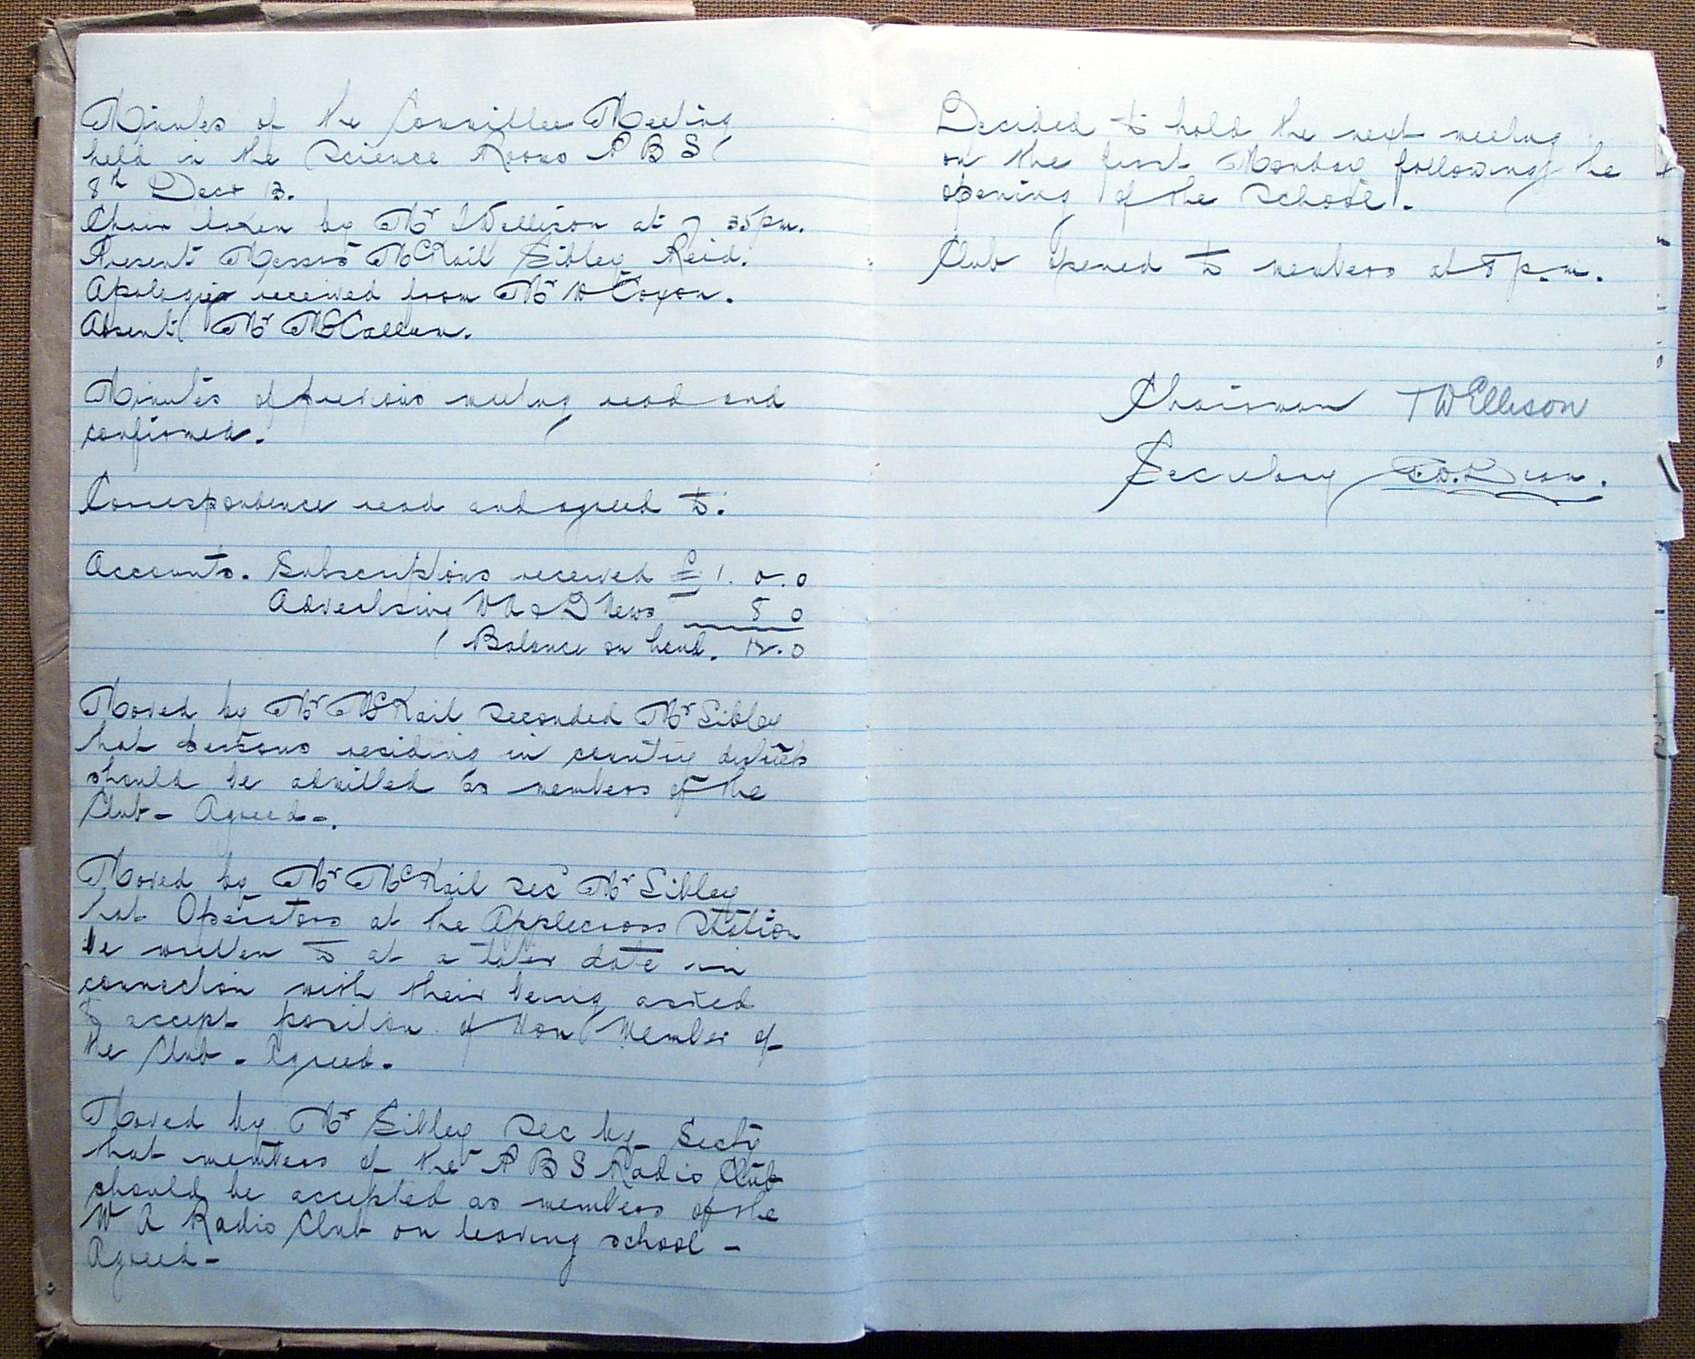 Minutes of the Committee Meeting
held in the Science Room P B S
8th Decr 13.
Chair taken by Mr Ellison at 7 35 pm.
Present Messrs McKail Sibley Reid.
Apologies received from Mr W Coxon.
Absent Mr McCallum.
Minutes of previous meeting read and
confirmed.
Correspondence read and agreed to.
Accounts. Subscriptions received £1. 0. 0
Advertising W A & G News 8 0
Balance on hand. 12. 0
Moved by Mr McKail seconded Mr Sibley
that persons residing in country districts
should be admitted as members of the
Club - Agreed -.
Moved by Mr McKail secd Mr Sibley
that Operators at the Applecross Station
be written to at a later date in
connection with their being asked
to accept position of Hon Member of
the Club - Agreed -.
Moved by Mr Sibley sec by Secty
that members of the P B S Radio Club
should be accepted as members of the
W A Radio Club on leaving school -
Agreed -
Decided to hold the next meeting
on the first Monday following the
opening of the school.
Club opened to members at 8 p.m.
Chairman TWEllison
Secretary